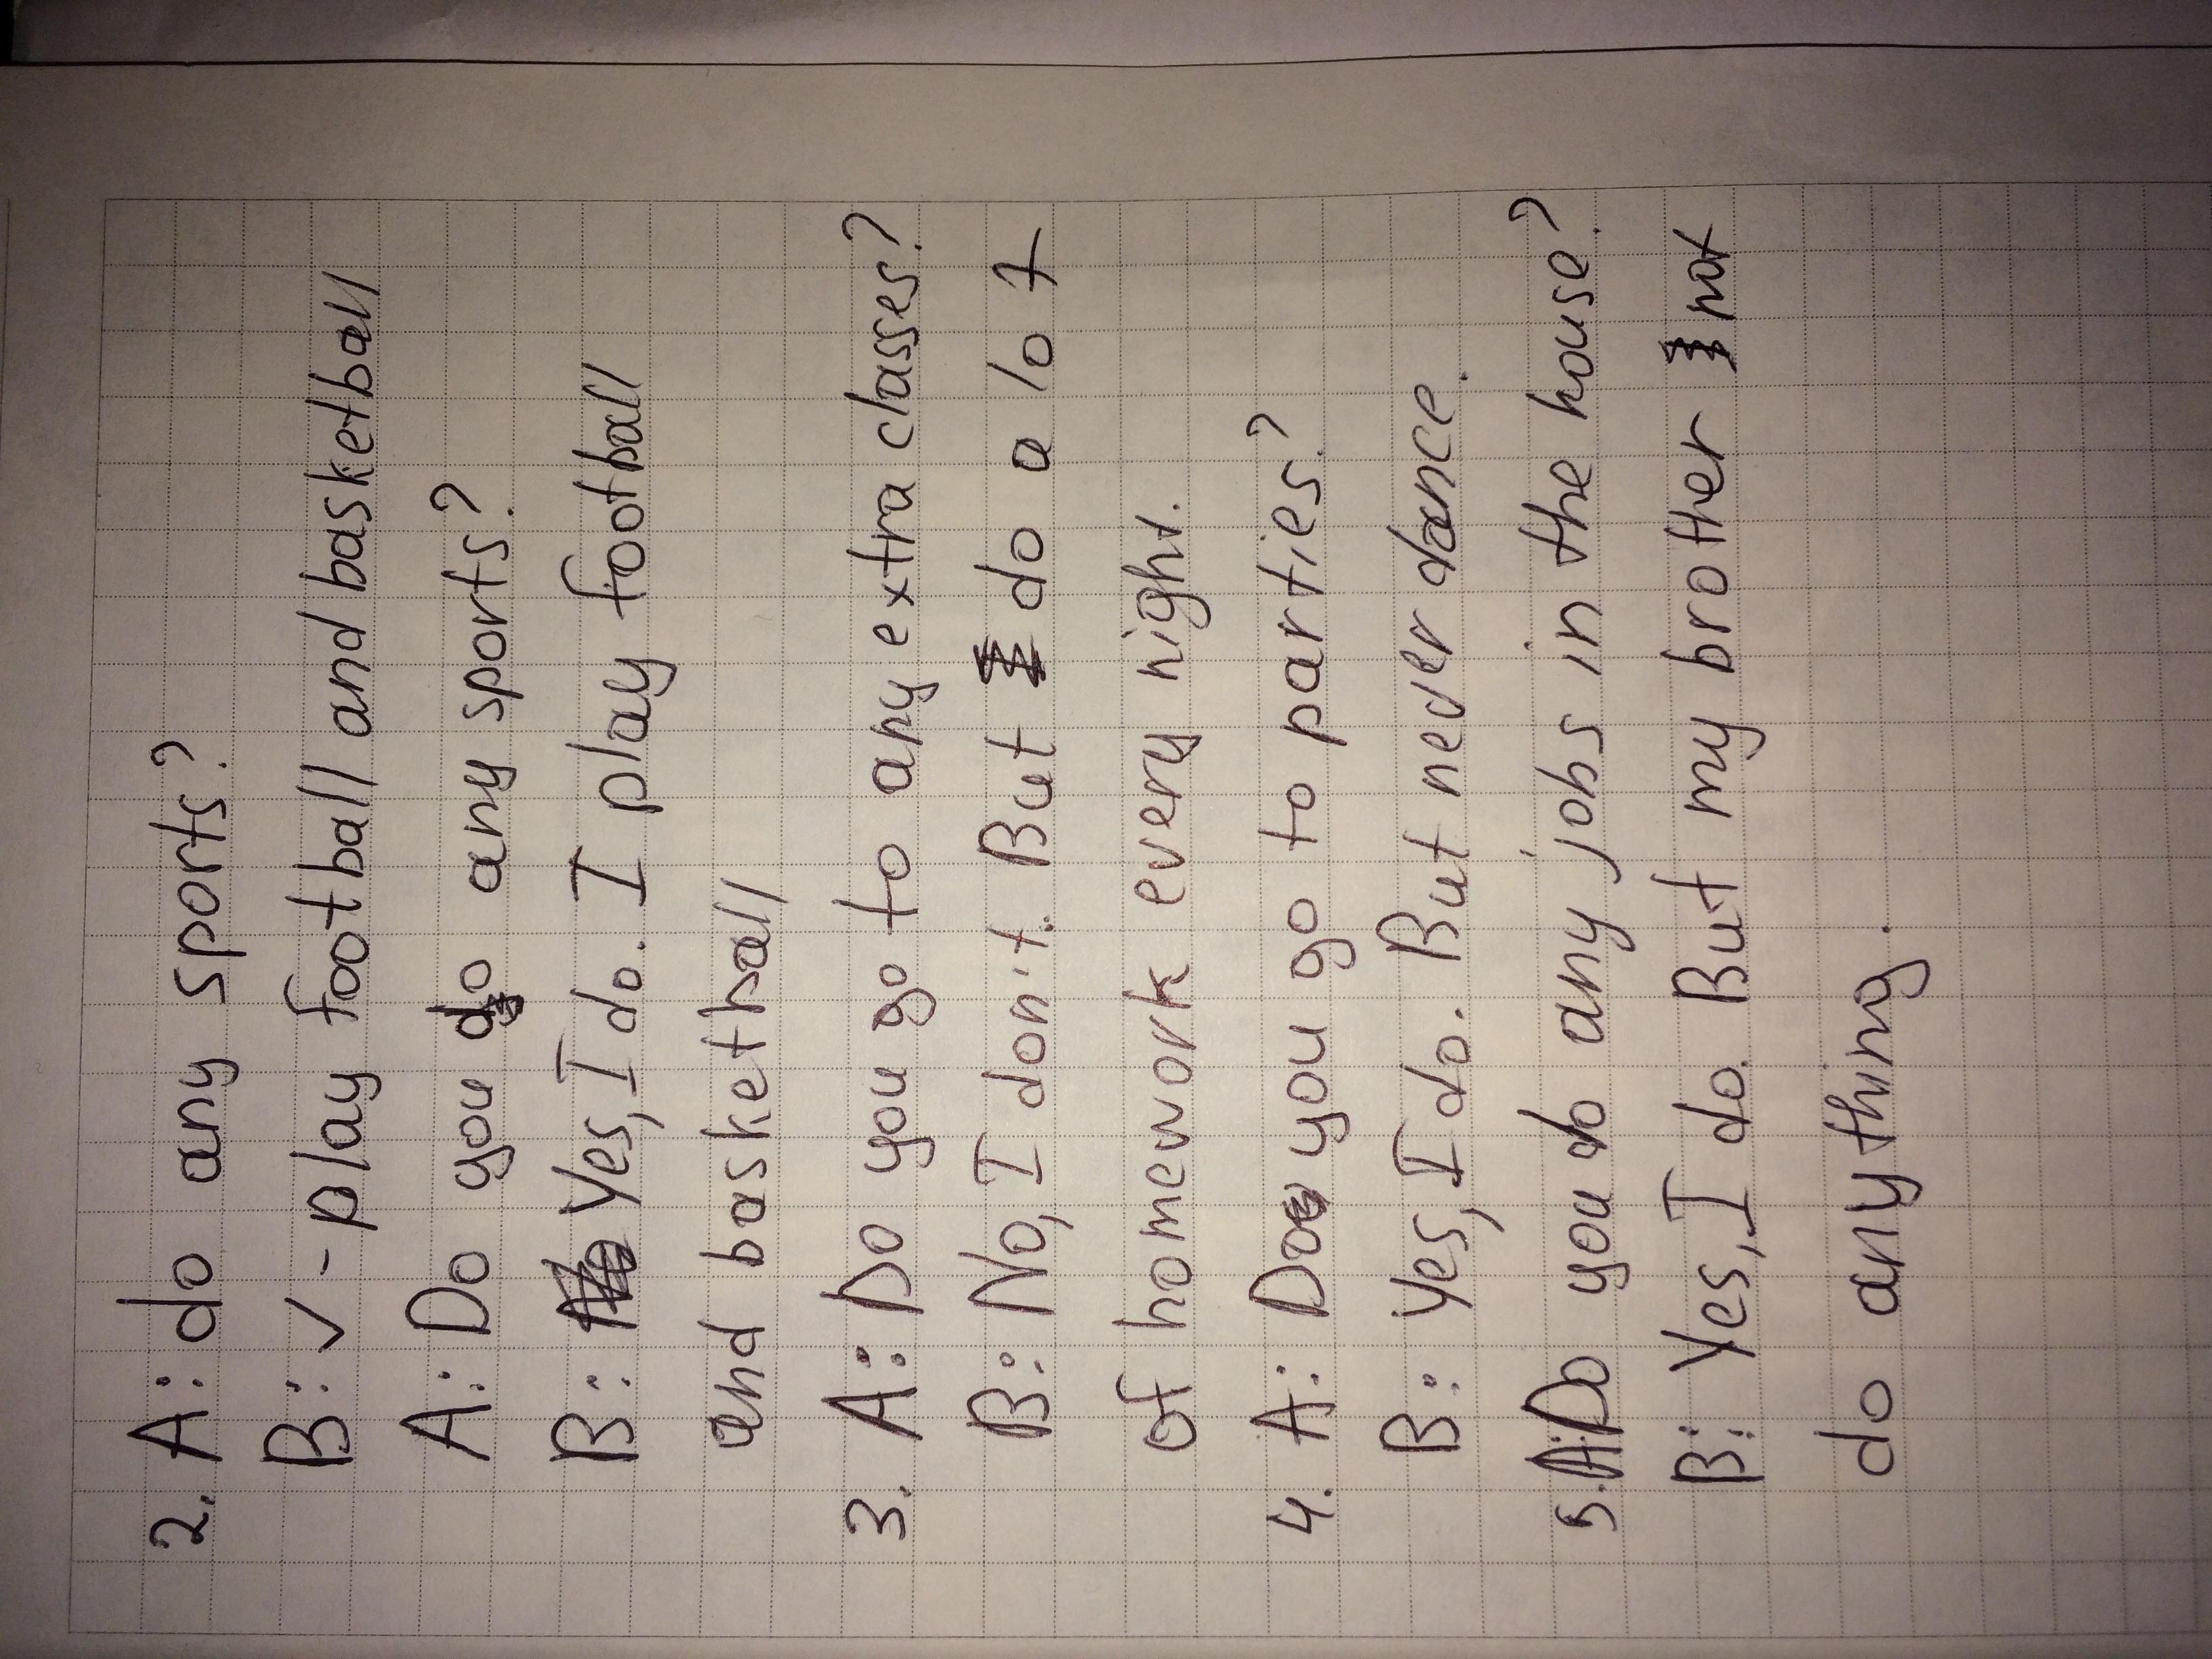 2. A: do any sports?
B: ✓ - play football and basketball
A: Do you do any sports?
B: Yes, I do. I play football
and basketball
3. A: Do you go to any extra classes?
B: No, I don't. But do a lot
of homework every night.
4. A: Do you go to parties?
B: Yes, I do. But never dance.
5. A: Do you do any jobs in the house?
B: Yes, I do. But my brother not
do anything.